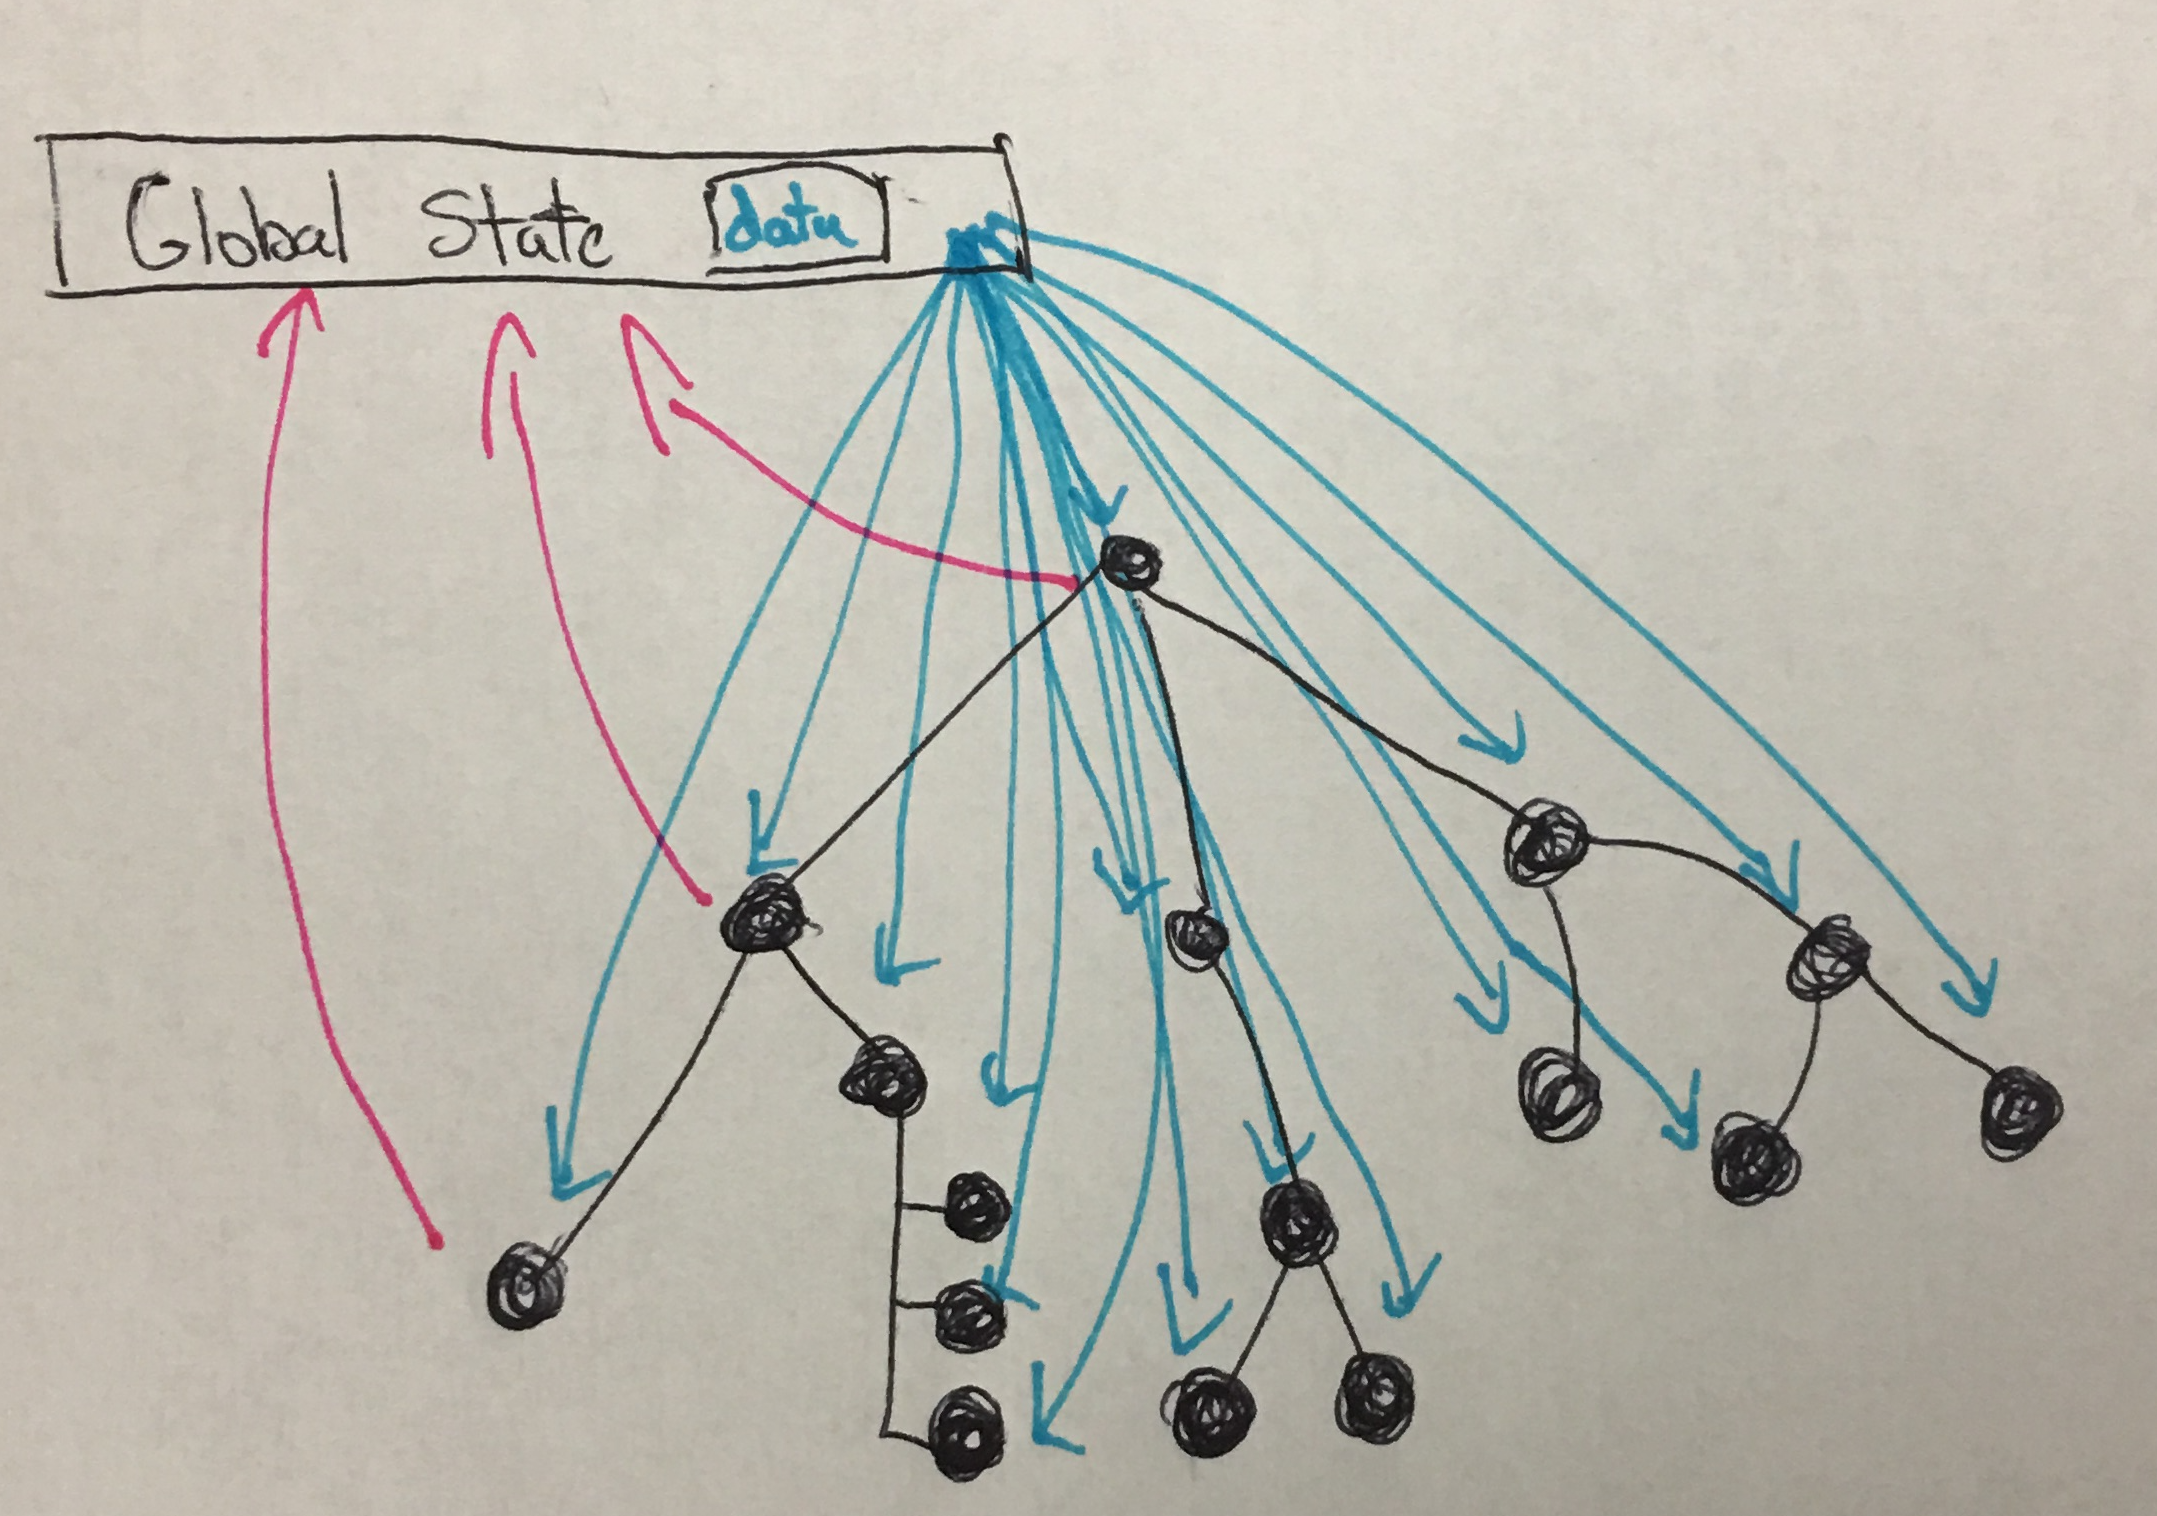 Global State data